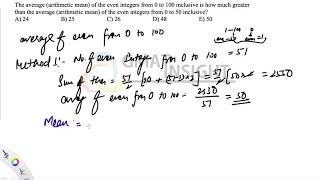 The average (arithmetic mean) of the even integers from 0 to 100 inclusive is how much greater
than the average (arithmetic mean) of the even integers from 0 to 50 inclusive?
A) 24 B) 25 C) 26 D) 48 E) 50
average of even from 0 to 100
1-100
Method 1:- No. of even Integer from 0 to 100 = 51
Sum of them = 51/2 [0 + (51-1)×2] = 51/2 [50×2 = 2550
average of even from 0 to 100 = 2550/51 = 50
Mean: =
INSIGHT